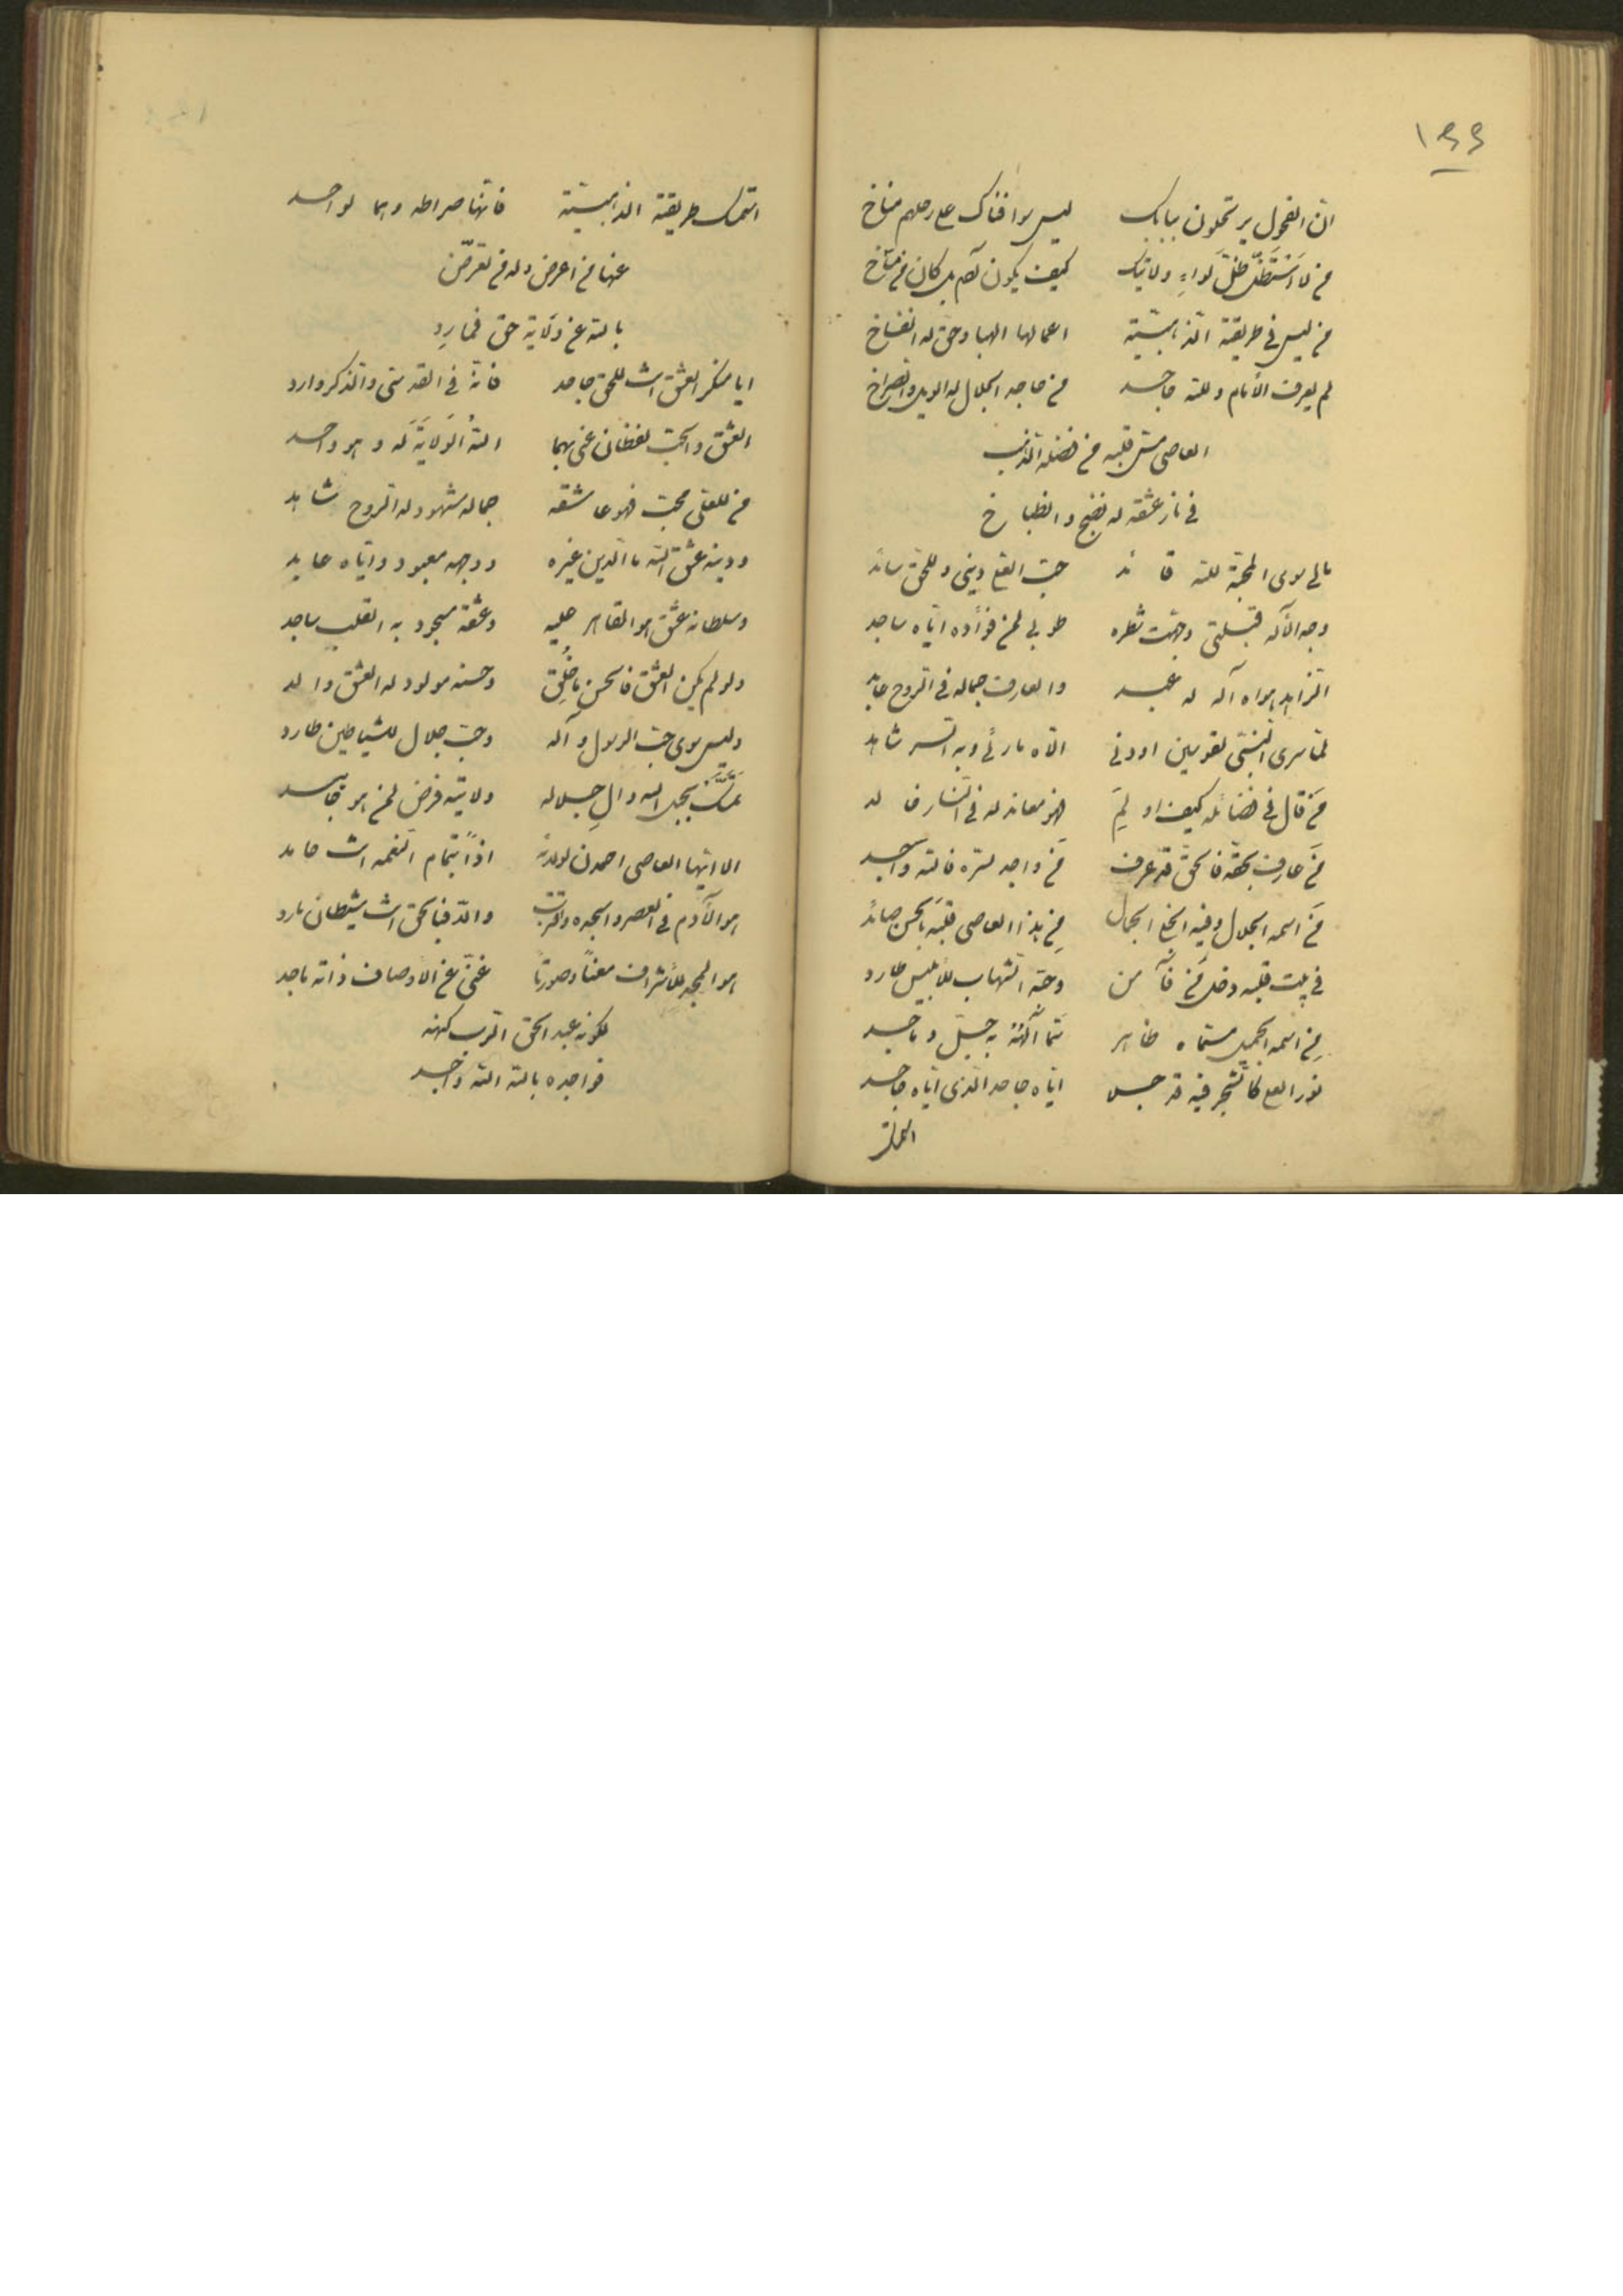 ۱۴۴
انّ الفحول يرتحلون ببابك ليس سوا فناك على رحلهم مناخ
من لا استظلّ ظلّ لواءِ ولايتك كيف يكون
من ليس في طريقة الذهبيّة اعمالها الهبا وحق له انفساخ
لم يعرف الأنام ولله جاحد من جاحد الجلال له الويل والصراخ
العاصي مسّ قلبه من فضله الذهب
في نار عشقه له نضج وانطباخ
مالي سوى المحبّة لله قائد حبّ العلي ديني وللحق سائد
وجه الأله قبلتي وجّهت شطره طوبى لمن فؤاده ايّاه ساجد
الزاهد هواه آله له عبد والعارف جماله في الروح عابد
لمّا سرى النبيّ لقوسين اودنى الّاه ما رئى وبه السر شاهد
من قال في فضائله كيف او لم فهو معاند له في النار خالد
من عارف بحقّه فالحقّ قد عرف من واجد لسرّه فالله واجد
من اسمه الجلال وفيه الجمال من هذا العاصي قلبه بالحسن صائد
في بيت قلبه دخل من فآمن وجّه الشهاب للأبليس طارد
من اسمه الجميل مسمّاه ظاهر
نور العلي كالشجر فيه قد جلى ايّاه جاحد الذي ايّاه جاحد
استمسك طريقة الذهبيّة فانّها صراطه وهما لواحد
عنها من اعرض وله من تعرّض
بالله عن ولاية حق فمارد
ايا منكر العشق انت للحق جاحد فانّه في القدسي والذكر وارد
العشق والحبّ لفظان عنى بهما الله الولاية له وهو واحد
من للعلي محبّ فهو عاشقه جماله مشهود له الروح شاهد
ودينه عشق الله ما الدين غيره ووجهه معبود وايّاه عابد
وسلطانه عشق هو القاهر عليه وعشقه مسجود به القلب ساجد
ولو لم يكن العشق فالحسن ما خُلِق وحسنه مولود له العشق والد
وليس سوى حبّ الرسول وآله وحبّ جلال للشياطين طارد
تمسّك بحبل الله وال جلاله ولايته فرض لمن هو
الا ايّها العاصي احمدن لولدنه اذاً بتمام النعمه انت حامد
هو الآدم في العصر واسجده واقترب والّا فبالحق انت شيطان مارد
هو المجد للأشراف معناً وصورتاً غنيّ عن الأوصاف ذاته ماجد
لكونه عبد الحق الرب كنهه
فواجده بالله الله واجد